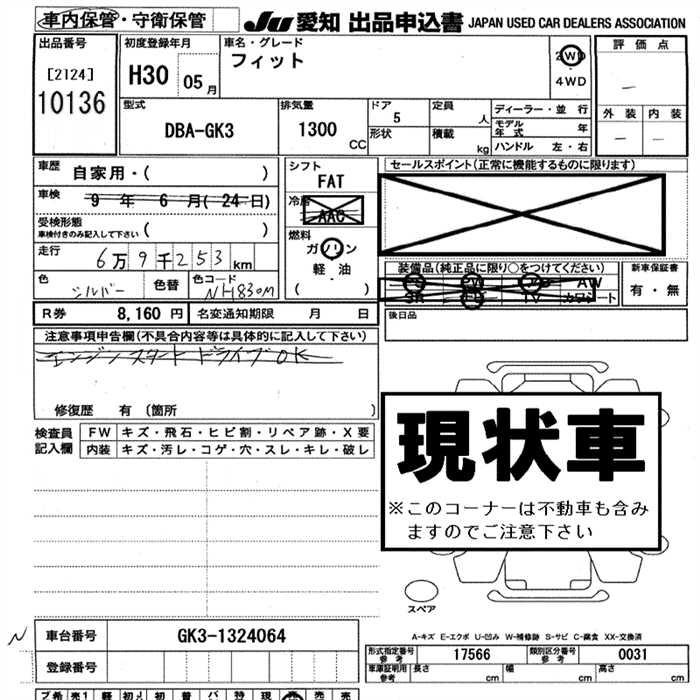 車内保管・守衛保管
JU 愛知 出品申込書 JAPAN USED CAR DEALERS ASSOCIATION
出品番号
[2124]
10136
初度登録年月
H30 05月
車名・グレード
フィット
2WD
・
4WD
評価点
―
外装 内装
― ―
型式
DBA-GK3
排気量
1300
CC
ドア
5
形状
定員
人
積載
kg
ディーラー・並行
モデル年式 年
ハンドル 左・右
車歴
自家用・( )
車検
9年6月(24日)
受検形態
車検付きのみ記入して下さい ( )
走行
6万9千253km
色
シルバー
色替
色コード
NH830M
シフト
FAT
冷房
AAC
燃料
ガソリン
軽・油
( )
セールスポイント(正常に機能するものに限ります)
装備品(純正品に限り○をつけてください)
PS PW AB AW
SR TV カワシート
新車保証書
有・無
後日品
R券 8,160円
名変通知期限 月 日
注意事項申告欄(不具合内容等は具体的に記入して下さい)
エンジンスタート ドライブOK
修復歴 有〔箇所 〕
検査員記入欄
FW キズ・飛石・ヒビ割・リペア跡・X要
内装 キズ・汚レ・コゲ・穴・スレ・キレ・破レ
現状車
※このコーナーは不動車も含み
ますのでご注意下さい
スペア
A-キズ E-エクボ U-凹み W-補修跡 S-サビ C-腐食 XX-交換済
N
車台番号
GK3-1324064
登録番号
形式指定番号
参考
17566
類別区分番号
参考
0031
車庫証明用
参考
長さ cm 幅 cm 高さ cm